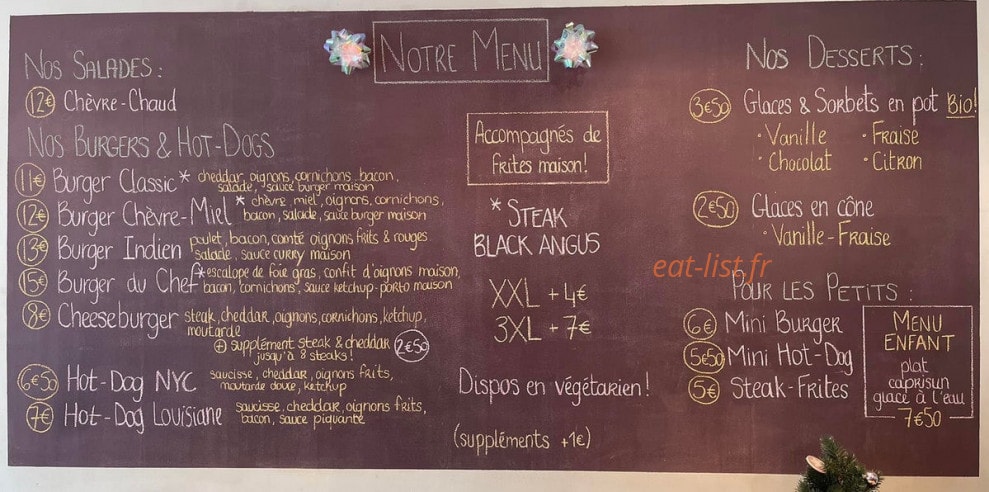 NOTRE MENU
NOS SALADES :
12€ Chèvre-Chaud
NOS BURGERS & HOT-DOGS
11€ Burger Classic * cheddar, oignons, cornichons, bacon,
salade, sauce burger maison
12€ Burger Chèvre-Miel * chèvre, miel, oignons, cornichons,
bacon, salade, sauce burger maison
13€ Burger Indien poulet, bacon, comté oignons frits & rouges
salade, sauce curry maison
15€ Burger du Chef * escalope de foie gras, confit d'oignons maison,
bacon, cornichons, sauce ketchup-porto maison
8€ Cheeseburger steak, cheddar, oignons, cornichons, ketchup,
moutarde
+ supplément steak & cheddar 2€50
jusqu'à 8 steaks !
6€50 Hot-Dog NYC saucisse, cheddar, oignons frits,
moutarde douce, ketchup
7€ Hot-Dog Louisiane saucisse, cheddar, oignons frits,
bacon, sauce piquante
Accompagnés de
frites maison !
* STEAK
BLACK ANGUS
XXL + 4€
3XL + 7€
Dispos en végétarien !
(suppléments +1€)
NOS DESSERTS :
3€50 Glaces & Sorbets en pot Bio !
· Vanille · Fraise
· Chocolat · Citron
2€50 Glaces en cône
· Vanille-Fraise
eat-list.fr
POUR LES PETITS :
6€ Mini Burger
5€50 Mini Hot-Dog
5€ Steak-Frites
MENU
ENFANT
plat
caprisun
glace à l'eau
7€50